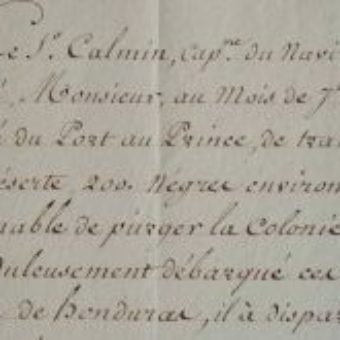 Le Sr. Calmin, capne. du Navi
, Monsieur, au Mois de 7b
du Port au Prince, de tra
éserte, 200 Nègres environ
nable de purger la Colonie
duleusement débarqué ces
de honduras, il à dispar